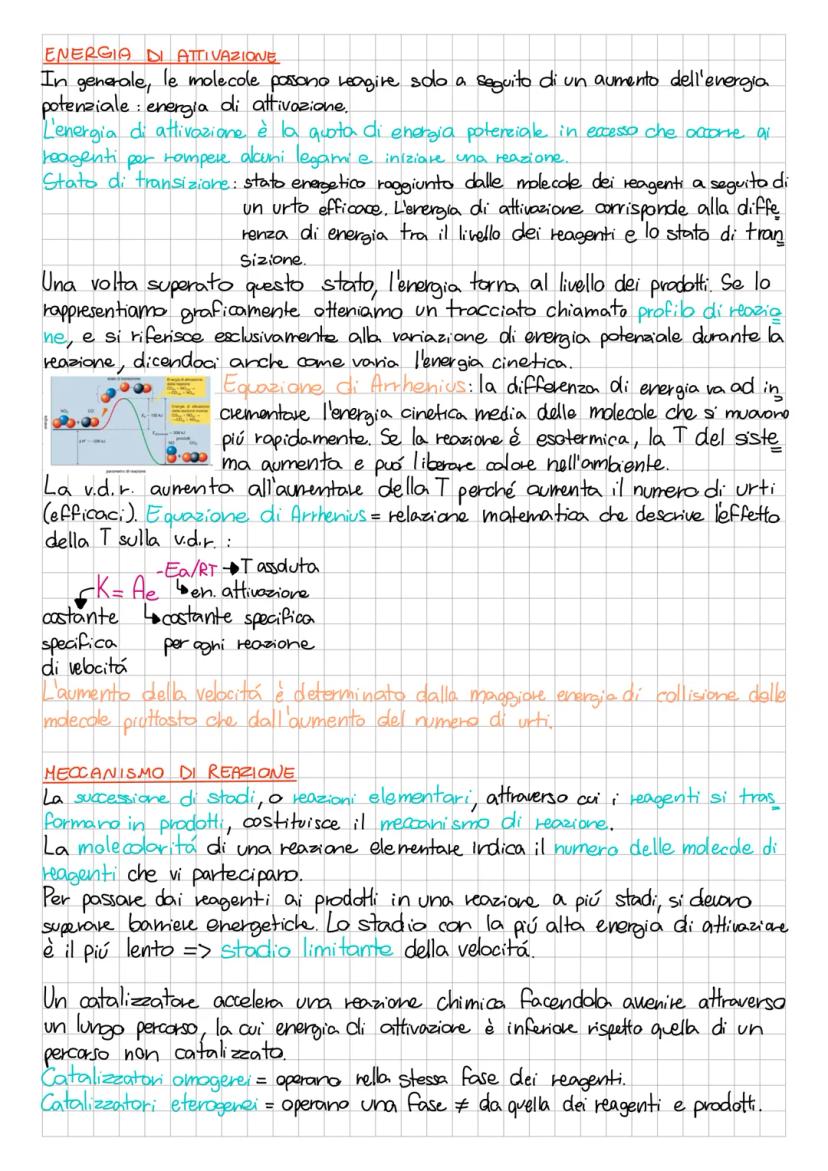 ENERGIA DI ATTIVAZIONE
In generale, le molecole possono reagire solo a seguito di un aumento dell'energia
potenziale : energia di attivazione.
L'energia di attivazione è la quota di energia potenziale in eccesso che occorre ai
reagenti per rompere alcuni legami e iniziare una reazione.
Stato di transizione: stato energetico raggiunto dalle molecole dei reagenti a seguito di
un urto efficace. L'energia di attivazione corrisponde alla diffe
renza di energia tra il livello dei reagenti e lo stato di tran
sizione.
Una volta superato questo stato, l'energia torna al livello dei prodotti. Se lo
rappresentiamo graficamente otteniamo un tracciato chiamato profilo di reazio
ne, e si riferisce esclusivamente alla variazione di energia potenziale durante la
reazione, dicendoci anche come varia l'energia cinetica.
stato di transizione
NO₂
CO
energia
prodotti
NO
CO₂
parametro di reazione
Equazione di Arrhenius: la differenza di energia va ad in
crementare l'energia cinetica media delle molecole che si muovono
piú rapidamente. Se la reazione è esotermica, la T del siste
ma aumenta e puó liberare calore nell'ambiente.
La v.d.r. aumenta all'aumentare della T perché aumenta il numero di urti
(efficaci). Equazione di Arrhenius = relazione matematica che descrive l'effetto
della T sulla v.d.r. :
-Ea/RT → T assoluta
K= Ae ↳ en. attivazione
costante ↳ costante specifica
specifica per ogni reazione
di velocitá
L'aumento della velocitá è determinato dalla maggiore energia di collisione delle
molecole piuttosto che dall'aumento del numero di urti.
MECCANISMO DI REAZIONE
La successione di stadi, o reazioni elementari, attraverso cui i reagenti si tras
formano in prodotti, costituisce il meccanismo di reazione.
La molecolaritá di una reazione elementare indica il numero delle molecole di
reagenti che vi partecipano.
Per passare dai reagenti ai prodotti in una reazione a piú stadi, si devono
superare barriere energetiche. Lo stadio con la piú alta energia di attivazione
è il piú lento => stadio limitante della velocitá.
Un catalizzatore accelera una reazione chimica facendola avvenire attraverso
un lungo percorso, la cui energia di attivazione è inferiore rispetto quella di un
percorso non catalizzato.
Catalizzatori omogenei = operano nella stessa fase dei reagenti.
Catalizzatori eterogenei = operano una fase ≠ da quella dei reagenti e prodotti.